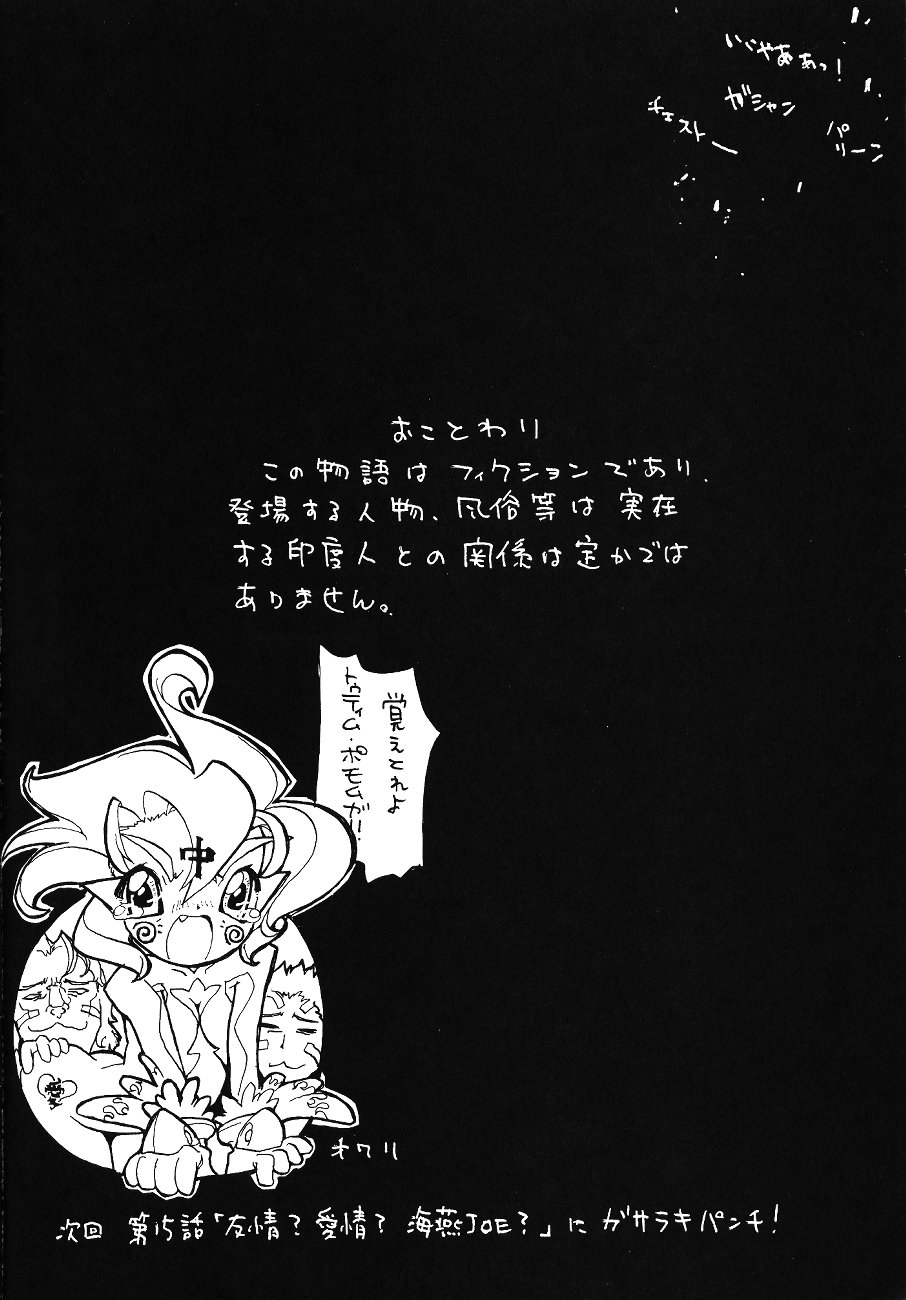 いぐやああっ!
ガシャン
パリーン
チェストー
おことわり
この物語はフィクションであり、
登場する人物、風俗等は実在
する印度人との関係は定かでは
ありません。
覚えてれよ
トゥティム・ポモムガ!!
中
愛
オワリ
次回 第15話「友情?愛情?海燕JOE?」にガサラキパンチ!